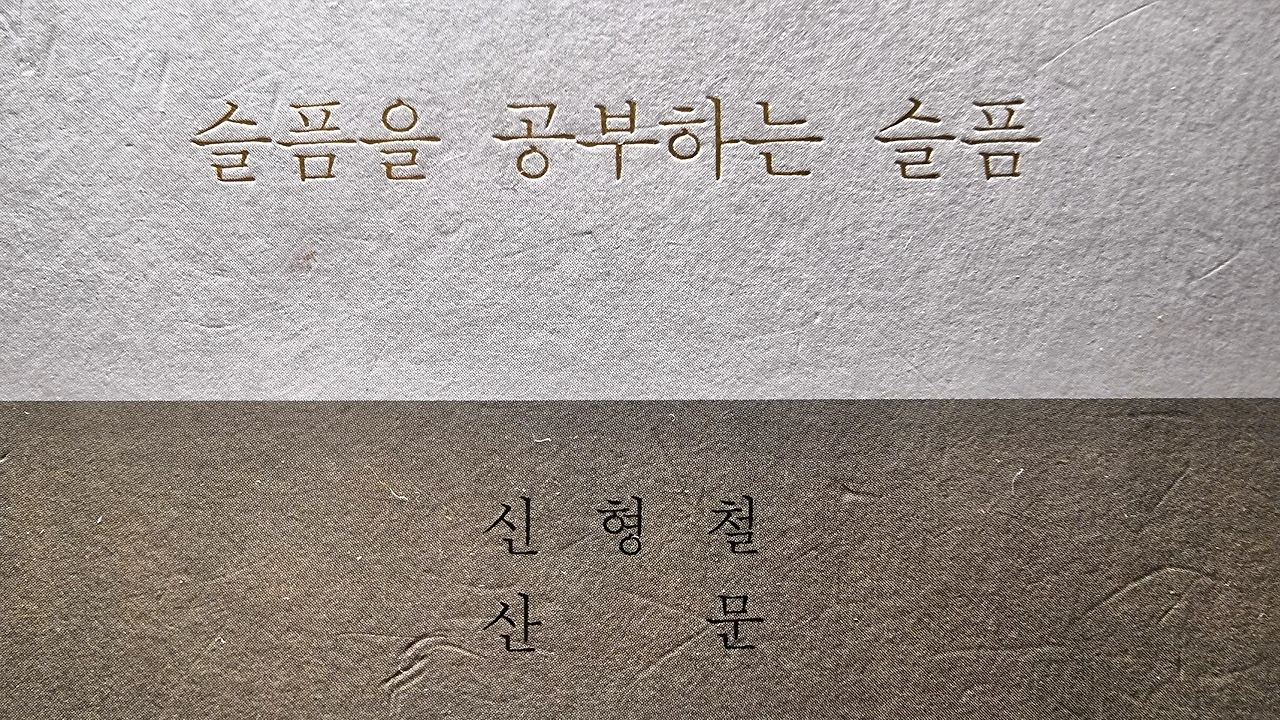 슬픔을 공부하는 슬픔
신형철
산문